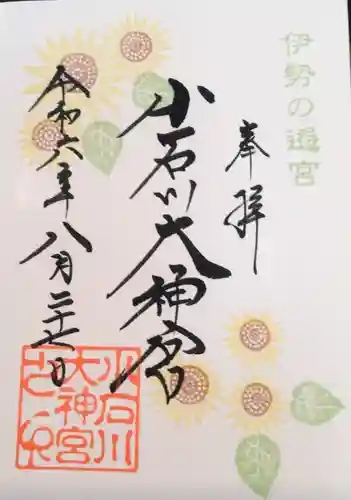 伊勢の遙宮
奉拝
小石川大神宮
令和六年八月二十七日
小石川
大神宮
之印